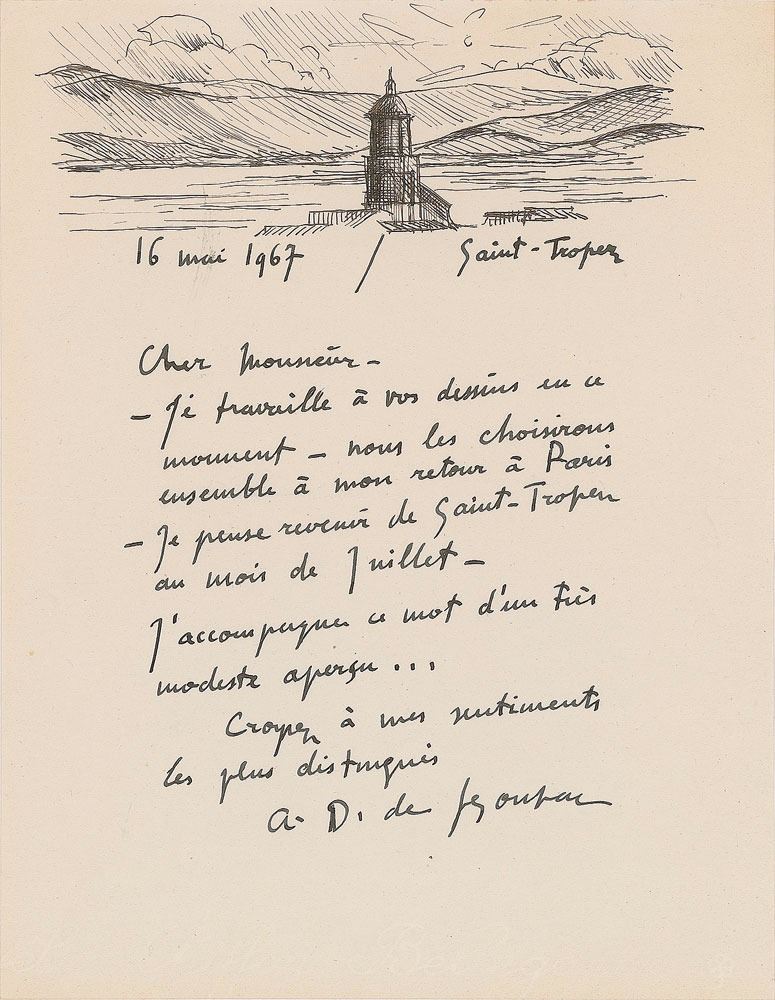 16 mai 1967 / Saint-Tropez
Cher Monsieur -
- Je travaille à vos dessins en ce
moment - nous les choisirons
ensemble à mon retour à Paris
- Je pense revenir de Saint-Tropez
au mois de Juillet -
J'accompagne ce mot d'un très
modeste aperçu ...
Croyez à mes sentiments
les plus distingués
A. D. de Segonzac